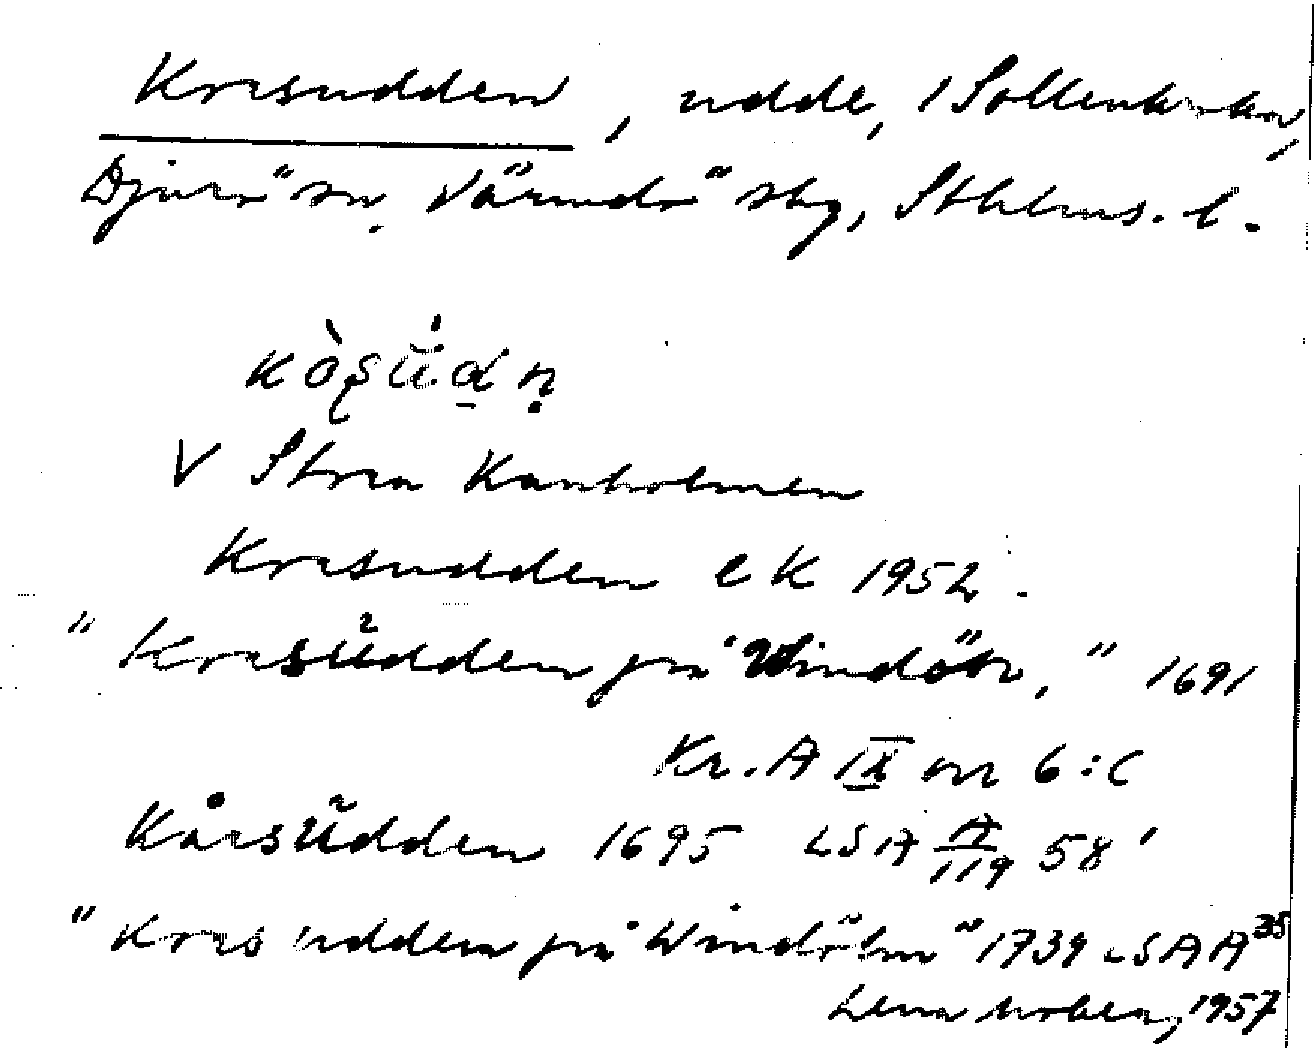 Korsudden, udde, i Sollenkroka,
Djurö sn, Värmdö sky, Sthlms. l.
kòʂüdn̩
V Stora Kanholmen
Korsudden eK 1952.
"Korsüdden på Windön," 1691
Kr. A IX nr 6:c
Kårsüdden 1695 LSA A/119 58'
"Kors udden på Windö" 1739 LSA A 35
Lena Moberg, 1957